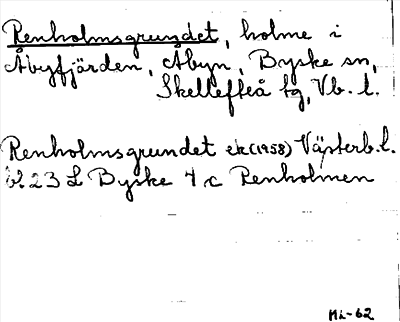 Renholmsgrundet, holme i
Åbyfjärden, Åbyn, Byske sn,
Skellefteå tg, Vb. l.
Renholmsgrundet ek (1958) Västerb. l.
bl 23 L Byske 4 c Renholmen
ML-62